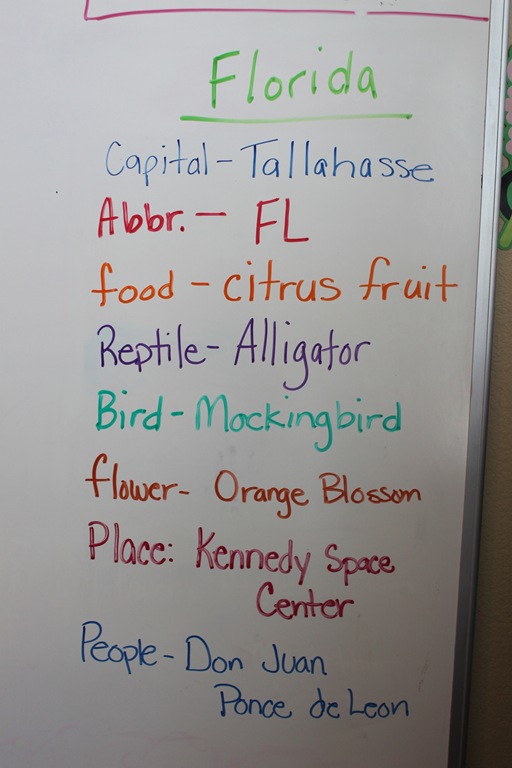 Florida
Capital - Tallahasse
Abbr. - FL
food - citrus fruit
Reptile - Alligator
Bird - Mockingbird
flower - Orange Blossom
Place: Kennedy Space
Center
People - Don Juan
Ponce de Leon